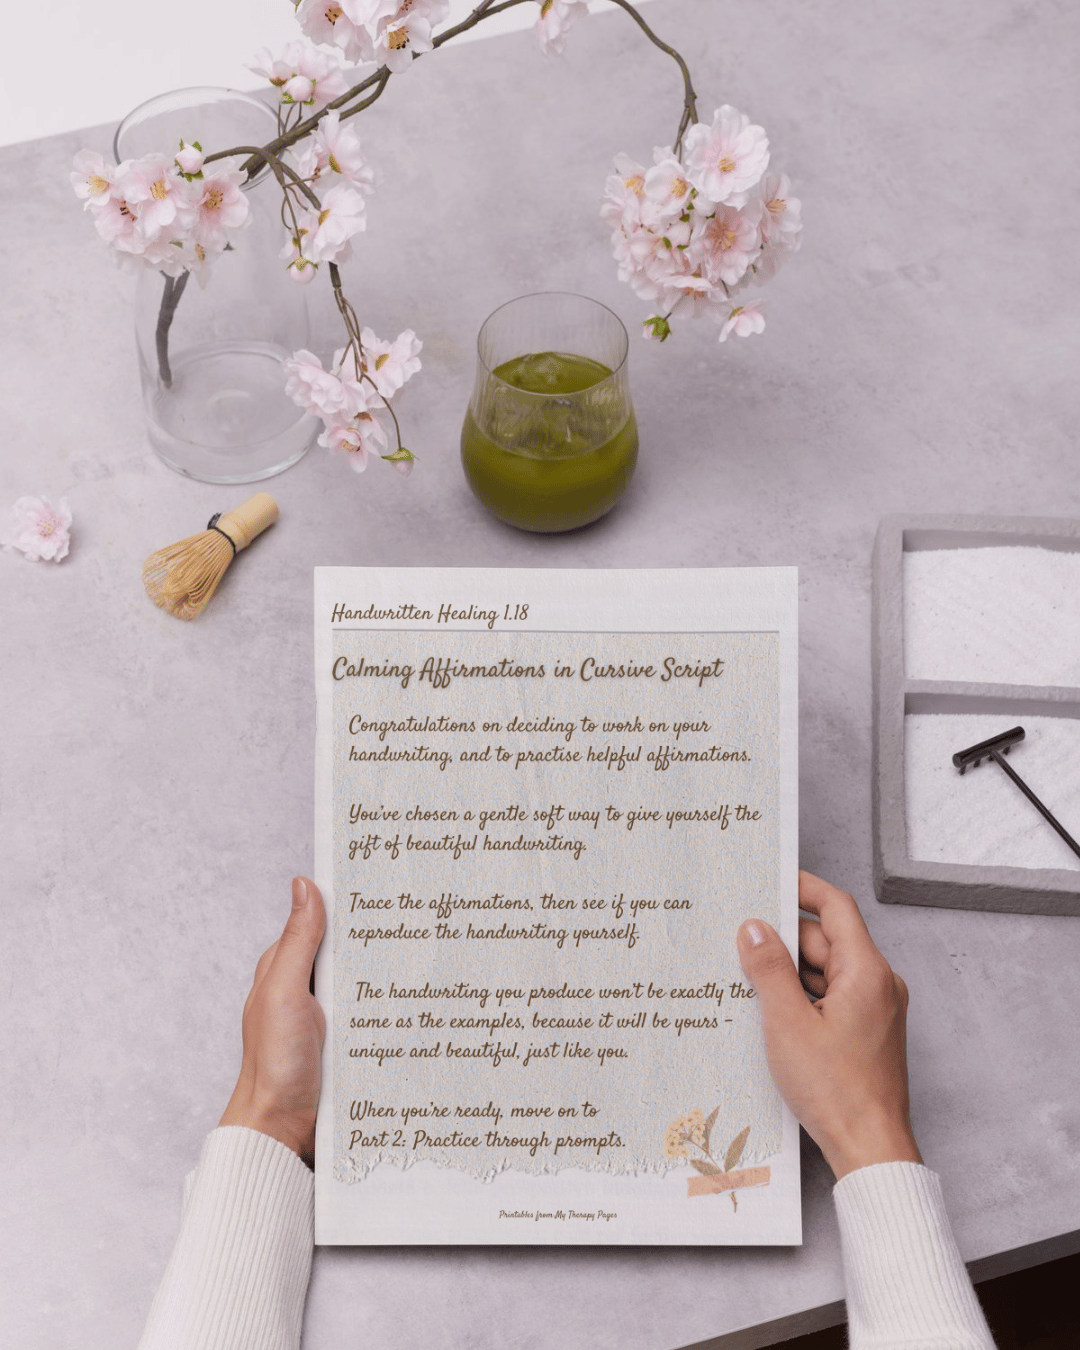 Handwritten Healing 1.18
Calming Affirmations in Cursive Script
Congratulations on deciding to work on your
handwriting, and to practise helpful affirmations.
You've chosen a gentle soft way to give yourself the
gift of beautiful handwriting.
Trace the affirmations, then see if you can
reproduce the handwriting yourself.
The handwriting you produce won't be exactly the
same as the examples, because it will be yours –
unique and beautiful, just like you.
When you're ready, move on to
Part 2: Practice through prompts.
Printables from My Therapy Pages